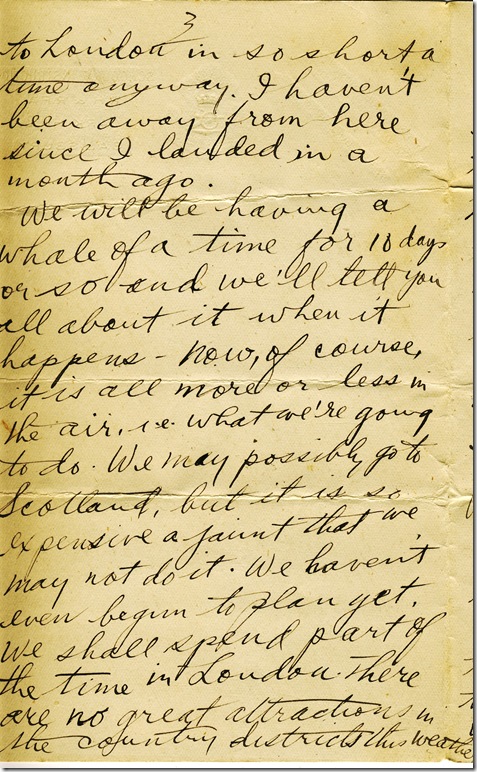 3
to London in so short a
time anyway. I haven't
been away from here
since I landed in a
month ago.
We will be having a
whale of a time for 10 days
or so and we'll tell you
all about it when it
happens - now, of course,
it is all more or less in
the air, i.e. what we're going
to do. We may possibly go to
Scotland, but it is so
expensive a jaunt that we
may not do it. We haven't
even begun to plan yet.
We shall spend part of
the time in London. There
are no great attractions in
the country districts this weather